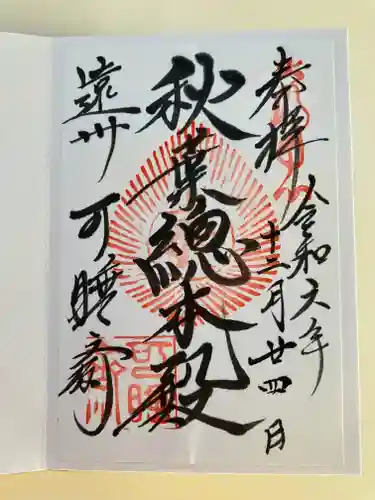 奉拝
令和六年
十二月廿四日
秋葉總本殿
遠州 可睡斎